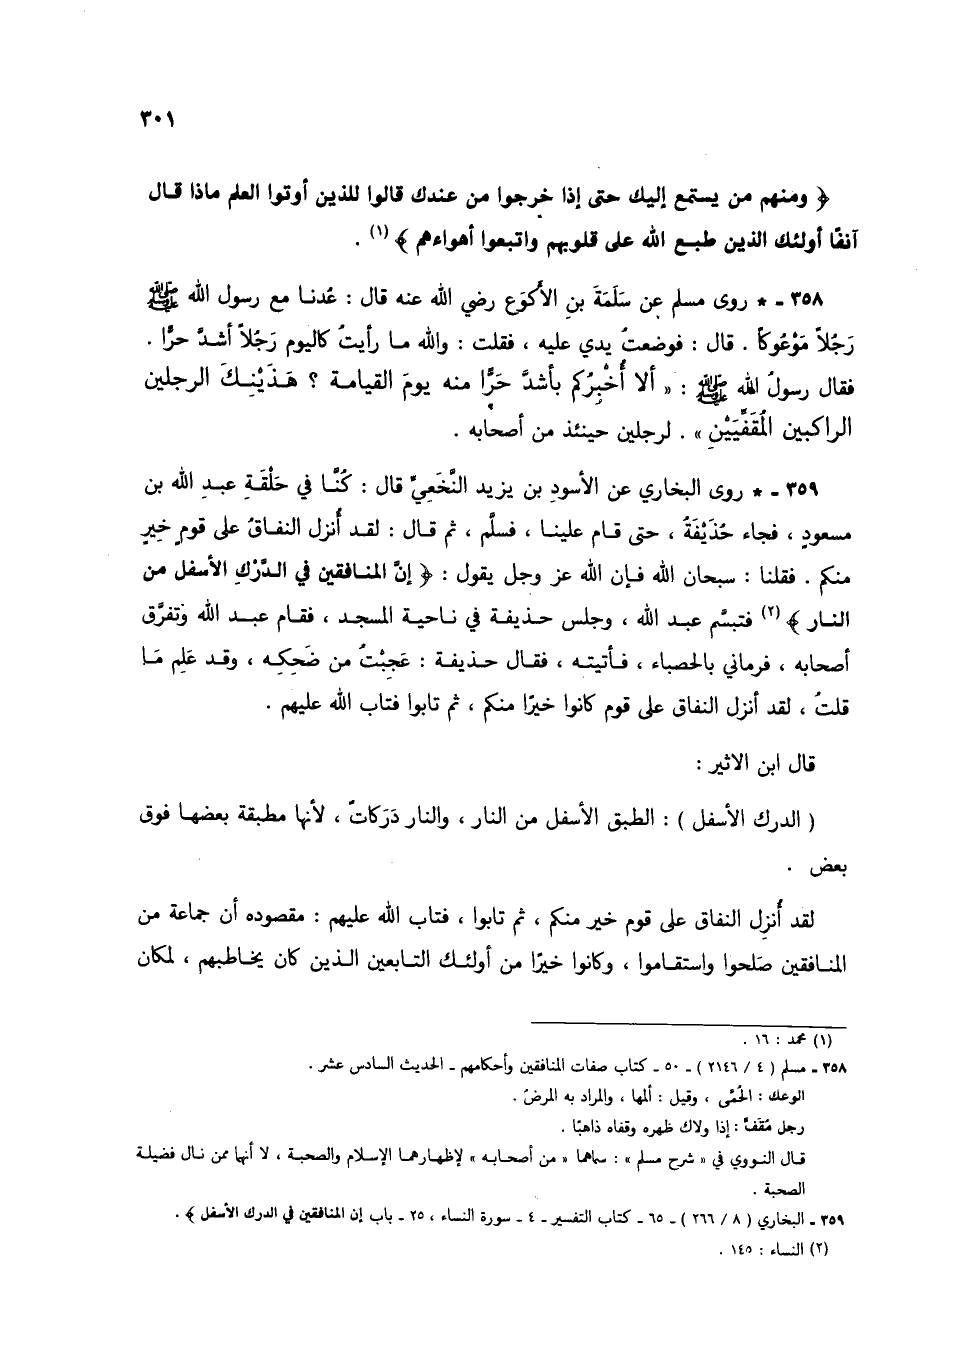 ٣٠١
﴿ ومنهم من يستمع إليك حتى إذا خرجوا من عندك قالوا للذين أوتوا العلم ماذا قال
آنفًا أولئك الذين طبع الله على قلوبهم واتبعوا أهواءهم ﴾ (١) .
٣٥٨ - * روى مسلم عن سَلَمَةَ بنِ الأكوَع رضي الله عنه قال : عُدنا مع رسول الله ﷺ
رَجُلاً مَوْعُوكاً . قال : فوضعتُ يدي عليه ، فقلت : والله ما رأيتُ كاليوم رَجُلاً أشدَّ حرًّا .
فقال رسولُ الله ﷺ : « ألا أُخْبِرُكم بأشدَّ حَرًّا منه يومَ القيامة ؟ هَذَيْنِكَ الرجلين
الراكبين المُقَفِّيَيْنِ » . لرجلين حينئذ من أصحابه .
٣٥٩ - * روى البخاري عن الأسودِ بن يزيد النَّخَعِيِّ قال : كُنَّا في حَلْقَةِ عبدِ الله بن
مسعودٍ ، فجاء حُذَيْفَةُ ، حتى قام علينا ، فسلَّم ، ثم قال : لقد أُنزل النفاقُ على قومٍ خيرٍ
منكم . فقلنا : سبحان الله فإن الله عز وجل يقول : ﴿ إنَّ المنافقين في الدَّرْكِ الأسفل من
النار ﴾ (٢) فتبسَّم عبد الله ، وجلس حذيفة في ناحية المسجد ، فقام عبد الله وتفرَّق
أصحابه ، فرماني بالحصباء ، فأتيته ، فقال حذيفة : عَجِبْتُ من ضَحِكِه ، وقد عَلِم مَا
قلتُ ، لقد أنزل النفاق على قوم كانوا خيرًا منكم ، ثم تابوا فتاب الله عليهم .
قال ابن الاثير :
( الدرك الأسفل ) : الطبق الأسفل من النار ، والنار دَرَكاتٌ ، لأنها مطبقة بعضها فوق
بعض .
لقد أُنزِل النفاق على قوم خير منكم ، ثم تابوا ، فتاب الله عليهم : مقصوده أن جماعة من
المنافقين صَلحوا واستقاموا ، وكانوا خيرًا من أولئك التابعين الذين كان يخاطبهم ، لمكان
(١) محمد : ١٦ .
٣٥٨ - مسلم ( ٤ / ٢١٤٦ ) - ٥٠ - كتاب صفات المنافقين وأحكامهم - الحديث السادس عشر .
الوعك : الحُمَّى ، وقيل : ألمها ، والمراد به المرضُ .
رجل مُقَفٍّ : إذا ولاك ظهره وقفاه ذاهبًا .
قال النووي في « شرح مسلم » : سماهما « من أصحابه » لإظهارهما الإسلام والصحبة ، لا أنها ممن نال فضيلة
الصحبة .
٣٥٩ - البخاري ( ٨ / ٢٦٦ ) - ٦٥ - كتاب التفسير - ٤ - سورة النساء ، ٢٥ - باب إن المنافقين في الدرك الأسفل ﴾ .
(٢) النساء : ١٤٥ .